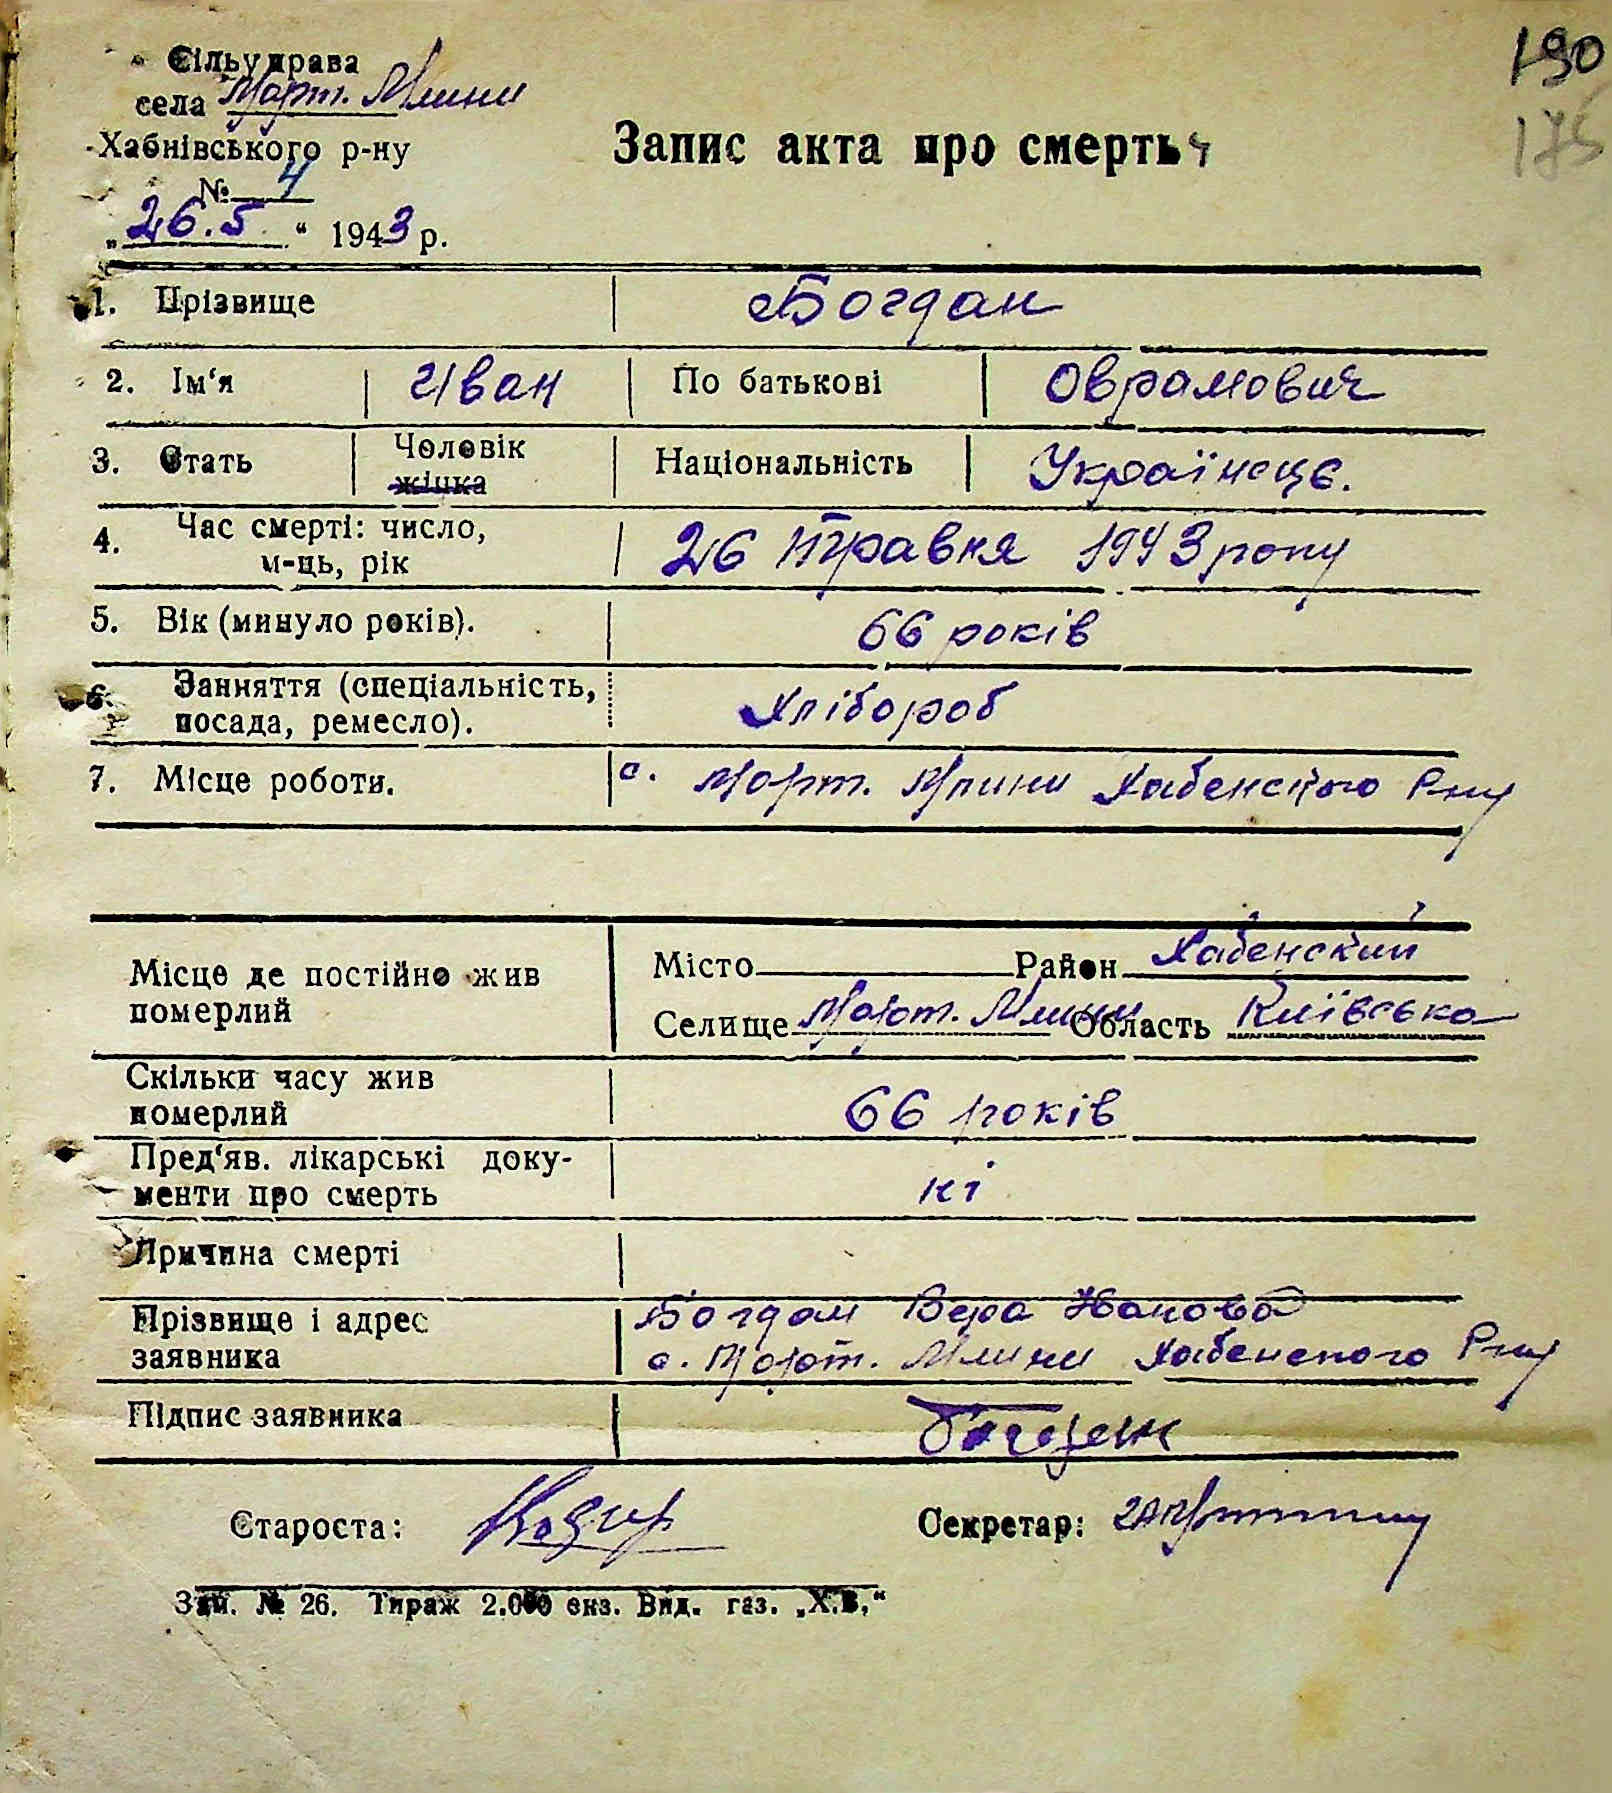 190
175
Сільуправа
села Март. Млини
Хабнівського р-ну
№ 4
„26.5“ 1943 р.
Запис акта про смерть 4
1. Прізвище Богдан
2. Ім‘я Иван По батькові Оврамович
3. Стать Чоловік жінка Національність Українецє.
4. Час смерті: число, м-ць, рік 26 травня 1943 року
5. Вік (минуло років). 66 років
6. Заняття (спеціальність, посада, ремесло). Хлібороб
7. Місце роботи. с. Март. Млини Хабенского Р-ну
Місце де постійно жив померлий
Місто Район Хабенский
Селище Март. Млини Область Київська
Скільки часу жив померлий 66 років
Пред‘яв. лікарські доку-
менти про смерть ні
Причина смерті
Прізвище і адрес заявника
Богдан Вера Ивановa
с. Март. Млини Хабенского Р-ну
Підпис заявника Богдан
Староста: Секретар:
Зам. № 26. Тираж 2.000 екз. Вид. газ. „Х.В.“